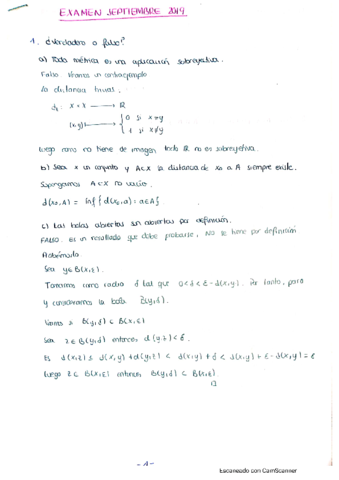 EXAMEN SEPTIEMBRE 2019
1. ¿Verdadero o falso?
a) Toda métrica es una aplicación sobreyectiva.
Falso. Veamos un contraejemplo
la distancia trivial.
d₁: X × X → R
(x,y) → { 0 si x=y
1 si x≠y
luego como no tiene de imagen todo R no es sobreyectiva.
b) Sea X un conjunto y A⊂X la distancia de x₀ a A siempre existe.
Supongamos A⊂X no vacío.
d(x₀,A) = inf { d(x₀,a) : a∈A }
c) Las bolas abiertas son abiertas por definición.
FALSO. Es un resultado que debe probarse. No se tiene por definición
Sea y∈B(x,ε).
Tomamos como radio δ tal que 0<δ<ε-d(x,y). Por tanto, para
y consideramos la bola B(y,δ).
Veamos si B(y,δ) ⊂ B(x,ε)
Sea z∈B(y,δ) entonces, d(y,z)<δ.
Es d(x,z) ≤ d(x,y)+d(y,z) < d(x,y)+δ < d(x,y)+ε-d(x,y)=ε
luego z∈B(x,ε) entonces B(y,δ) ⊂ B(x,ε)
□
-1-
Escaneado con CamScanner